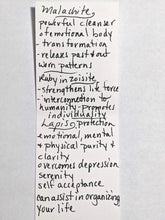 Malachite,
powerful cleanser
of emotional body
- transformation
- releases past & out
worn patterns
Ruby in zoisite
- strengthens life force
interconnection to
humanity - promotes
individuality
Lapis, protection
emotional, mental
& physical purity &
clarity
overcomes depression
serenity
self acceptance
can assist in organizing
your life